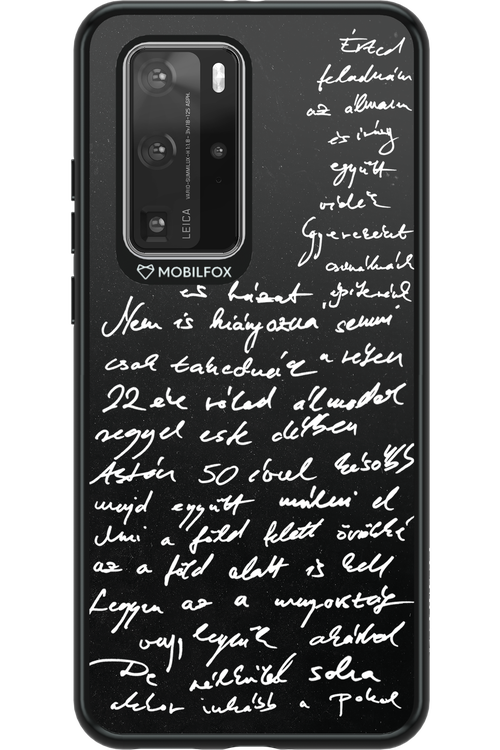 Érted
feladnám
az álmam
és irány
együtt
vidék
Gyerekeket
csinálnánk
és házat építenénk
Nem is hiányozna semmi
csak takednék a réten
22 éve rólad álmodok
reggel este délben
Aztán 50 évvel később
majd együtt múlni el
Ami a föld felett örökké
az a föld alatt is kell
Legyen az a mennyország
vagy legyünk akárhol
De nélküled soha
akkor inkább a pokol
MOBILFOX
LEICA
VARIO-SUMMILUX-H 1:1.8-3.4/18-125 ASPH.